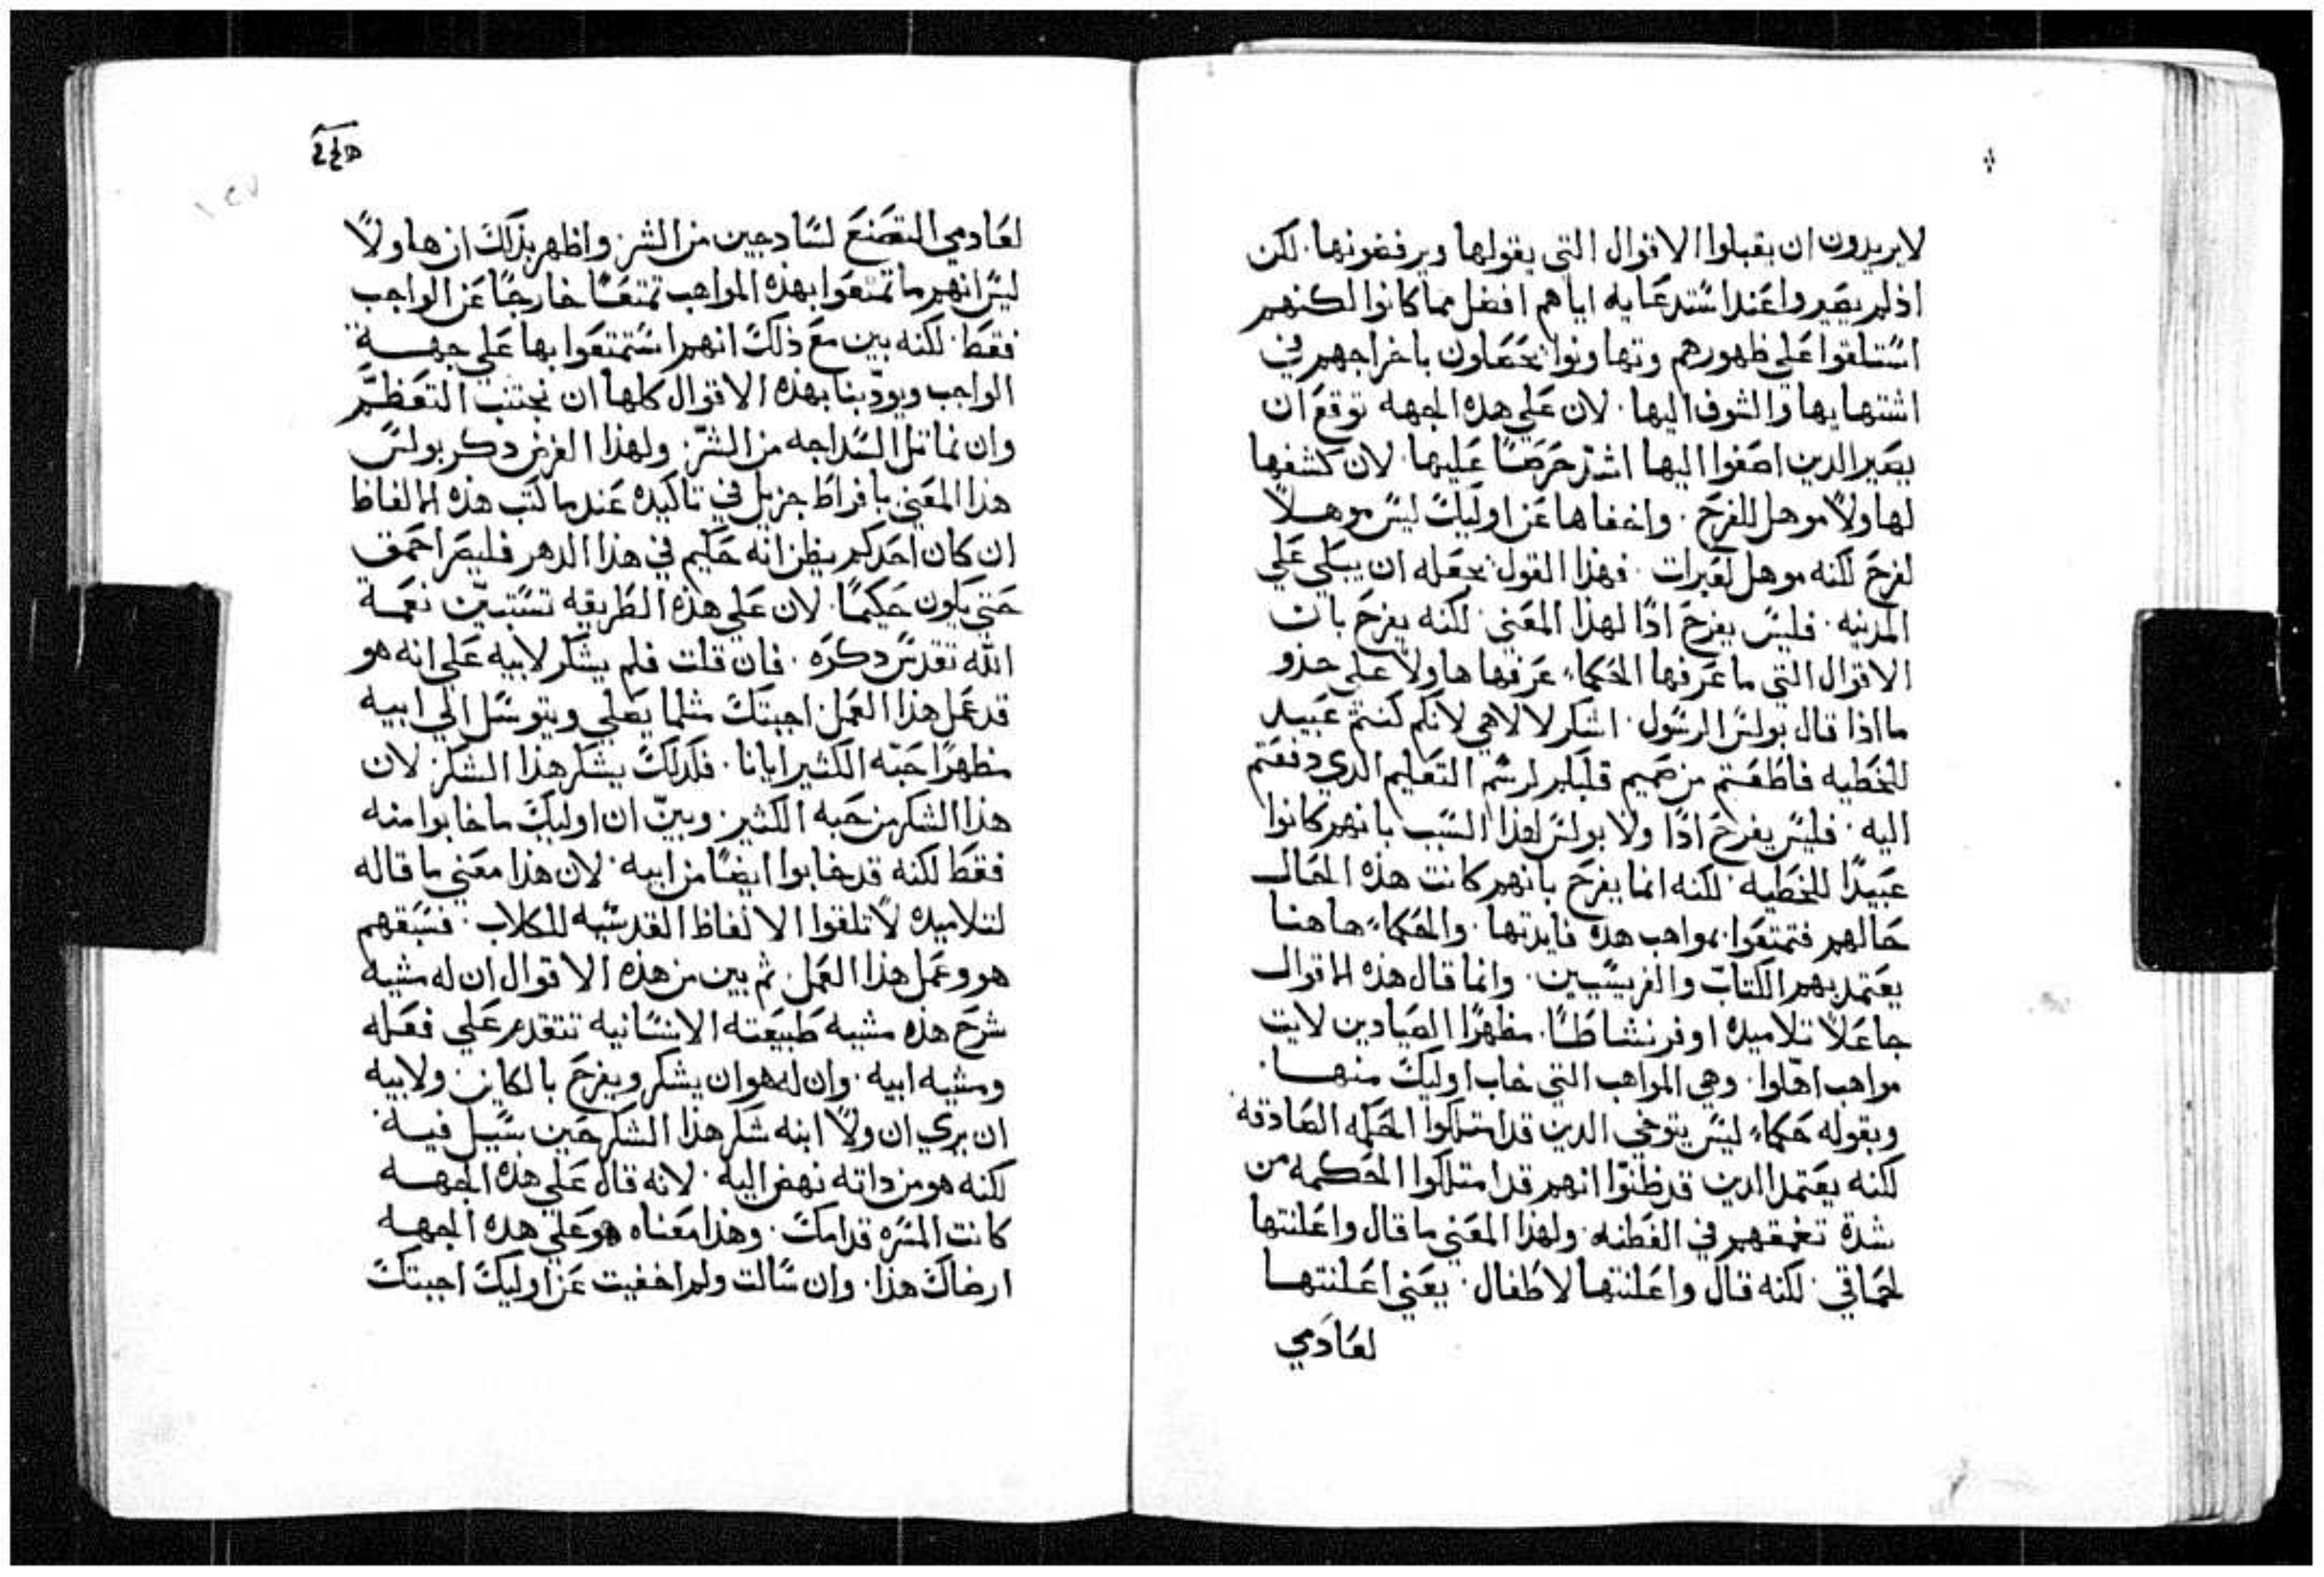 لايريدون ان يقبلوا الاقوال التي يقولها ويرفضونها. لكن
اذ لم يصيروا عند استدعايه اياهم افضل مما كانوا لكنهم
استلقوا على ظهورهم وتهاونوا بحعلون باخراجهم في
اشتهايها والشوف اليها. لان على هذه الجهه توقع ان
يصير الدين اصغوا اليها اشد حرصًا عليها. لان كشفها
لهاولاً موهل للفرح. واخفاها عن اوليك ليس موهلاً
لفرح لكنه موهل لعبرات. فهذا القول بحعله ان يبكي علي
المدينه. فليس يفرح ادًا لهذا المعني لكنه يفرح بان
الاقوال التي ما عرفها الحكماء عرفها هاولا على حذو
ما اذا قال بولس الرسول. اشكر لالاهي لانكم كنتم عبيد
للخطيه فاطعتم من صميم قلبكم لرسم التعليم الدي دفعتم
اليه. فليس يفرح ادًا ولا بولس لهذا السبب بانهم كانوا
عبيدًا للخطيه. لكنه انما يفرح بانهم كانت هذه الحال
حالهم فتمتعوا بمواهب هذه فايدتها. والحكماء هاهنا
يعتمد بهم الكتاب والفريسيين. وانما قال هذه الاقوال
جاعلاً تلاميده اوفر نشاطًا. مظهرًا الصيادين لايت
مواهب اهلوا. وهي المواهب التي خاب اوليك منها.
وبقوله حكماء ليس يتوخي الدين قد امتلكوا الحكمه الصادقه
لكنه يعتمد الدين قد ظنوا انهم قد امتلكوا الحكمه من
شدة تعمقهم في الفطنه. ولهذا المعني ما قال واعلنتها
لحماقي. لكنه قال واعلنتها لاطفال. يعني اعلنتها
لعادمي
لعادمي التصنع لسادجين من الشر. واظهر بذلك ان هاولاً
ليس انهم ما تمتعوا بهذه المواهب تمتعًا خارجًا عن الواجب
فقط. لكنه بين مع ذلك انهم استمتعوا بها على جهة
الواجب ويودبنا بهذه الاقوال كلها ان نجتنب التعظم
وان نماتل السداجه من الشر. ولهذا الغرض دكر بولس
هذا المعني بافراط جزيل في تاكيده عندما كتب هذه الالفاظ
ان كان احدكم يظن انه حكيم في هذا الدهر فليصر احمق
حتي يكون حكيمًا. لان على هذه الطريقه تستبين نعمة
الله تقدس دكره. فان قلت فلم يشكر لابيه على انه هو
قد عمل هذا العمل. اجبتك مثلما يصلي ويتوسل الى ابيه
مظهرًا حبه الكثير ايانا. فكدلك يشكر هذا الشكر. لان
هذا الشكر من حبه الكثير. وبين ان اوليك ما خابوا منه
فقط لكنه قد خابوا ايضًا من ابيه. لان هذا معني ما قاله
لتلاميده لا تلقوا الالفاظ القدسيه للكلاب. فسبقهم
هو وعمل هذا العمل. ثم بين من هذه الاقوال ان له مشيه
شرح هذه مشيه طبيعته الانسانيه تتقدم على فعله
ومشيه ابيه. وان له هو ان يشكر ويفرح بالكاين. ولابيه
ان يري ان ولا ابنه شكر هذا الشكر حين سيل فيه
لكنه هو من داته نهض اليه. لانه قال على هذه الجهه
كانت المسره قدامك. وهذا معناه هو على هده الجهه
ارضاك هذا. وان سالت ولم اخفيت عن اوليك اجبتك